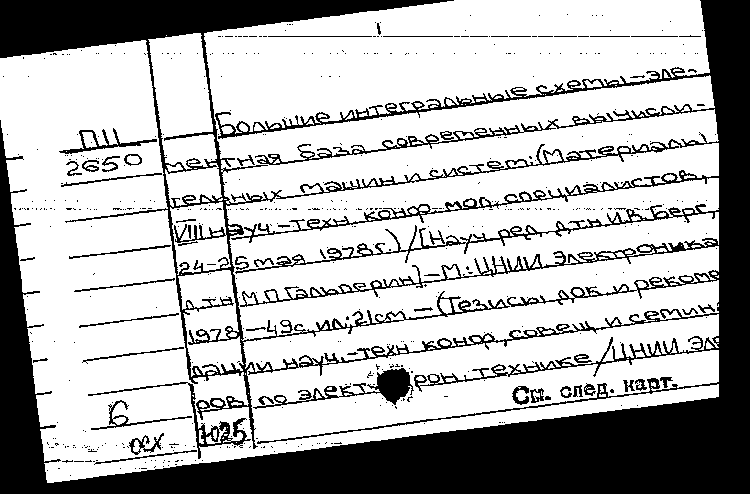 Большие интегральные схемы – эле-
П11
2650
ментная база современных вычисли-
тельных машин и систем: (Материалы
VIII науч.-техн. конф. мол. специалистов,
24-25 мая 1978 г.) / [Науч. ред. д.т.н И.В. Берг,
д.т.н М.П. Гальперин] – М.: ЦНИИ Электроника
1978 – 49с, ил.; 21cm. – (Тезисы док. и рекоме
дации науч.-техн конф., совещ и семина
ров по элект рон. технике / ЦНИИ Эле
См. след. карт.
Б
осх
1025